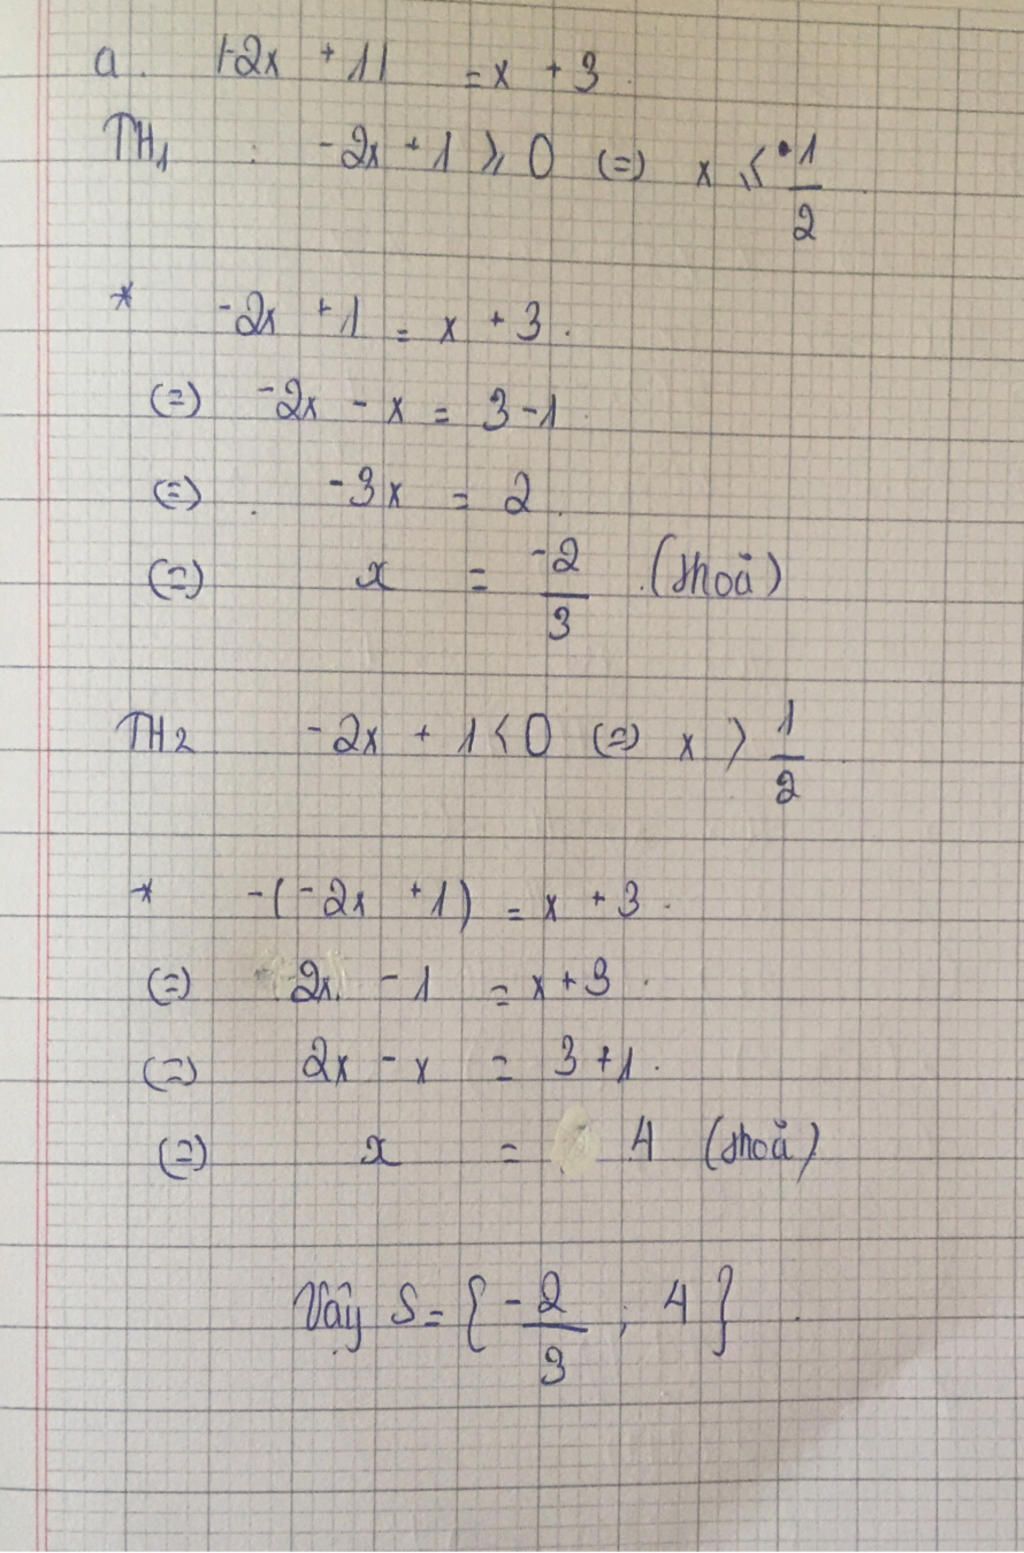 a. |-2x + 1| = x + 3.
TH1 : -2x + 1 ⩾ 0 (=) x ⩽ 1/2
* -2x + 1 = x + 3.
(=) -2x - x = 3-1
(=) -3x = 2.
(=) x = -2/3 (thoả)
TH2 -2x + 1 < 0 (=) x > 1/2
* -(-2x + 1) = x + 3.
(=) 2x - 1 = x + 3.
(=) 2x - x = 3 + 1.
(=) x = 4 (thoả)
Vậy S = { -2/3 ; 4 }.